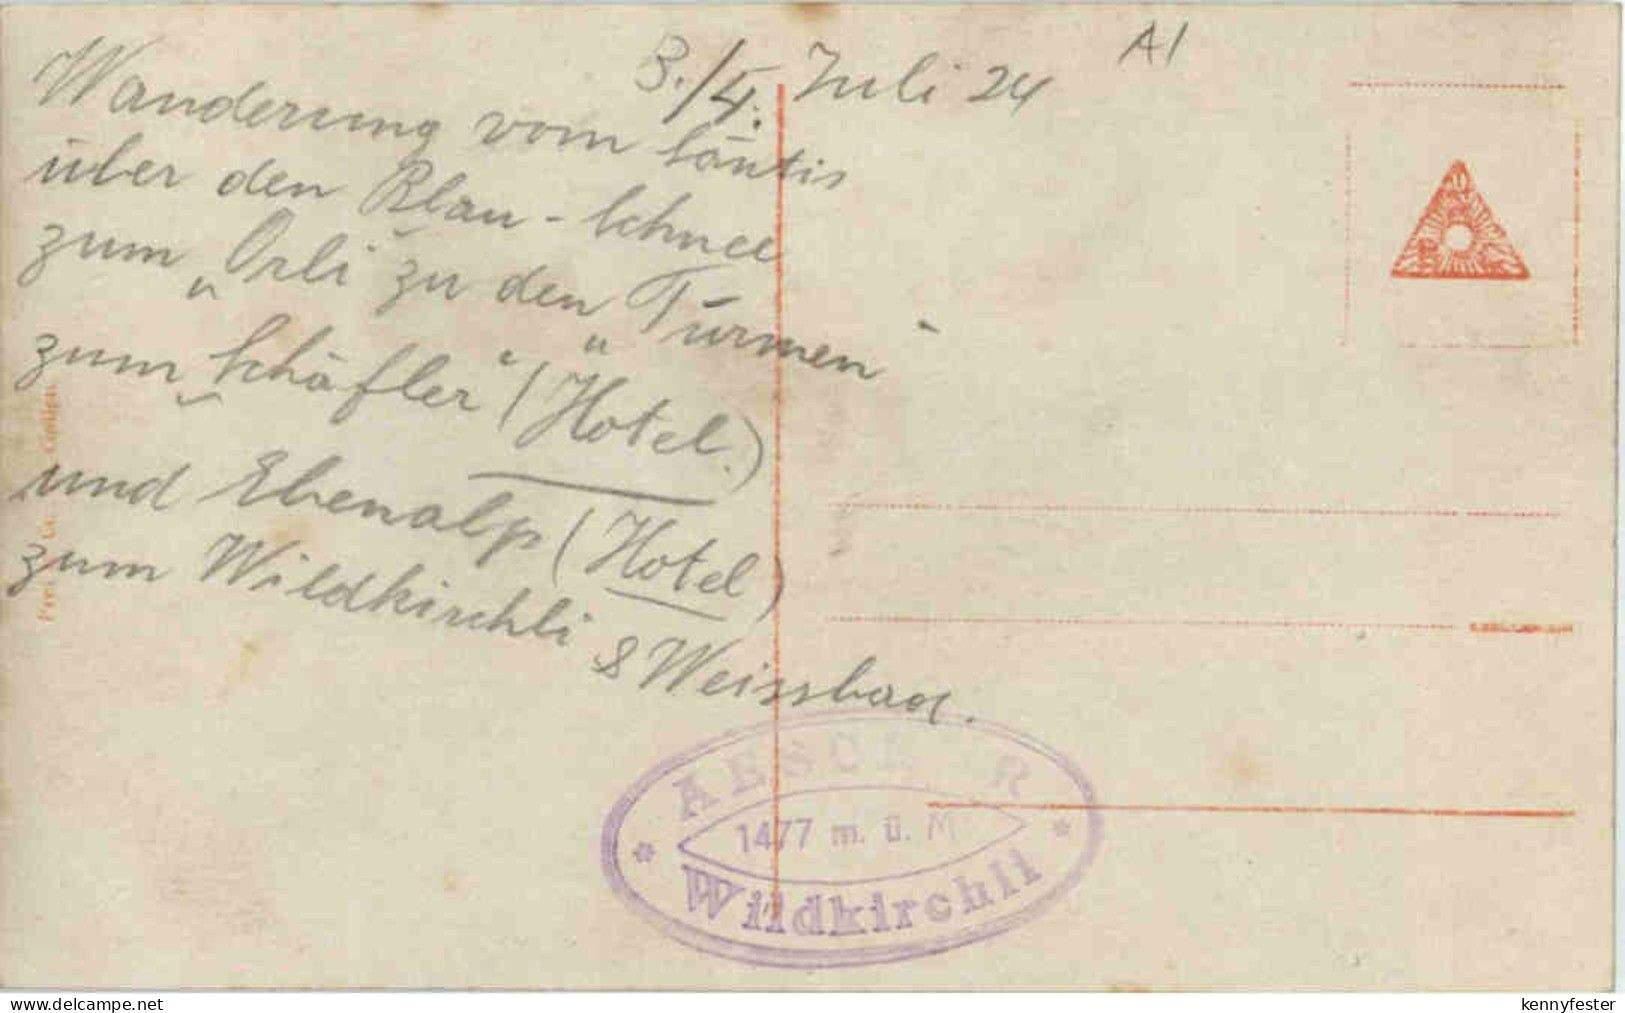 A1
3./4. Juli 24
Wanderung vom Säntis
über den Blau-Schnee
zum „Orli" zu den „Türmen"
zum „Schäfler" (Hotel.)
und Ebenalp (Hotel)
zum Wildkirchli & Weissbad.
AESCHER
1477 m. ü. M
Wildkirchli
www.delcampe.net
kennyfester